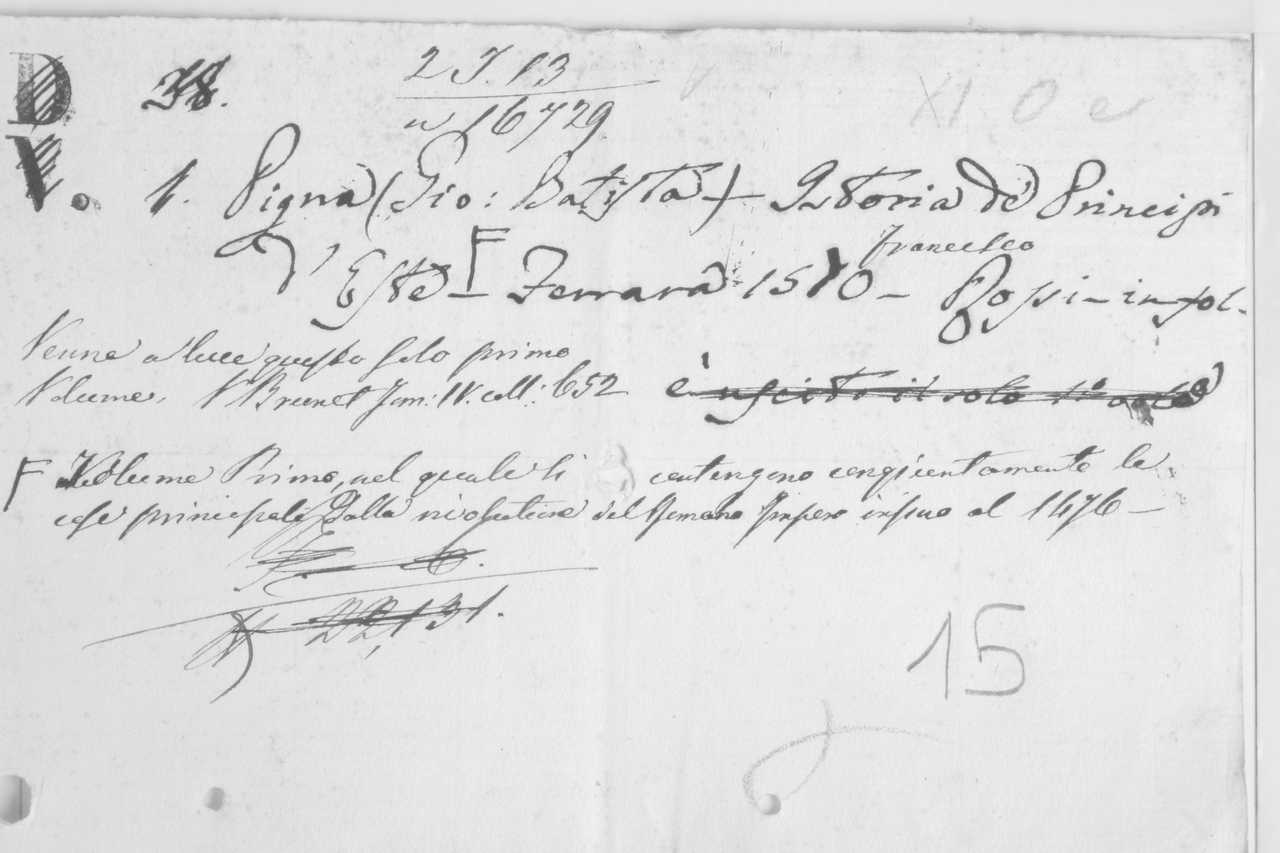 D 38. 2 I. 13
V. n 16729 XI 0 e
1. Pigna (Gio: Batista) - Istoria de' Principi
d'Este - F Ferrara 1570 - Francesco Rossi - in fol.
Venne a luce questo solo primo
Volume. V Brunet Tom: IV. coll: 652 è uscito il solo 1º vol.
F Volume Primo, nel quale si contengono congiuntamente le
cose principali dalla rivolutione del Romano Impero insino al 1476 -
22,131.
15